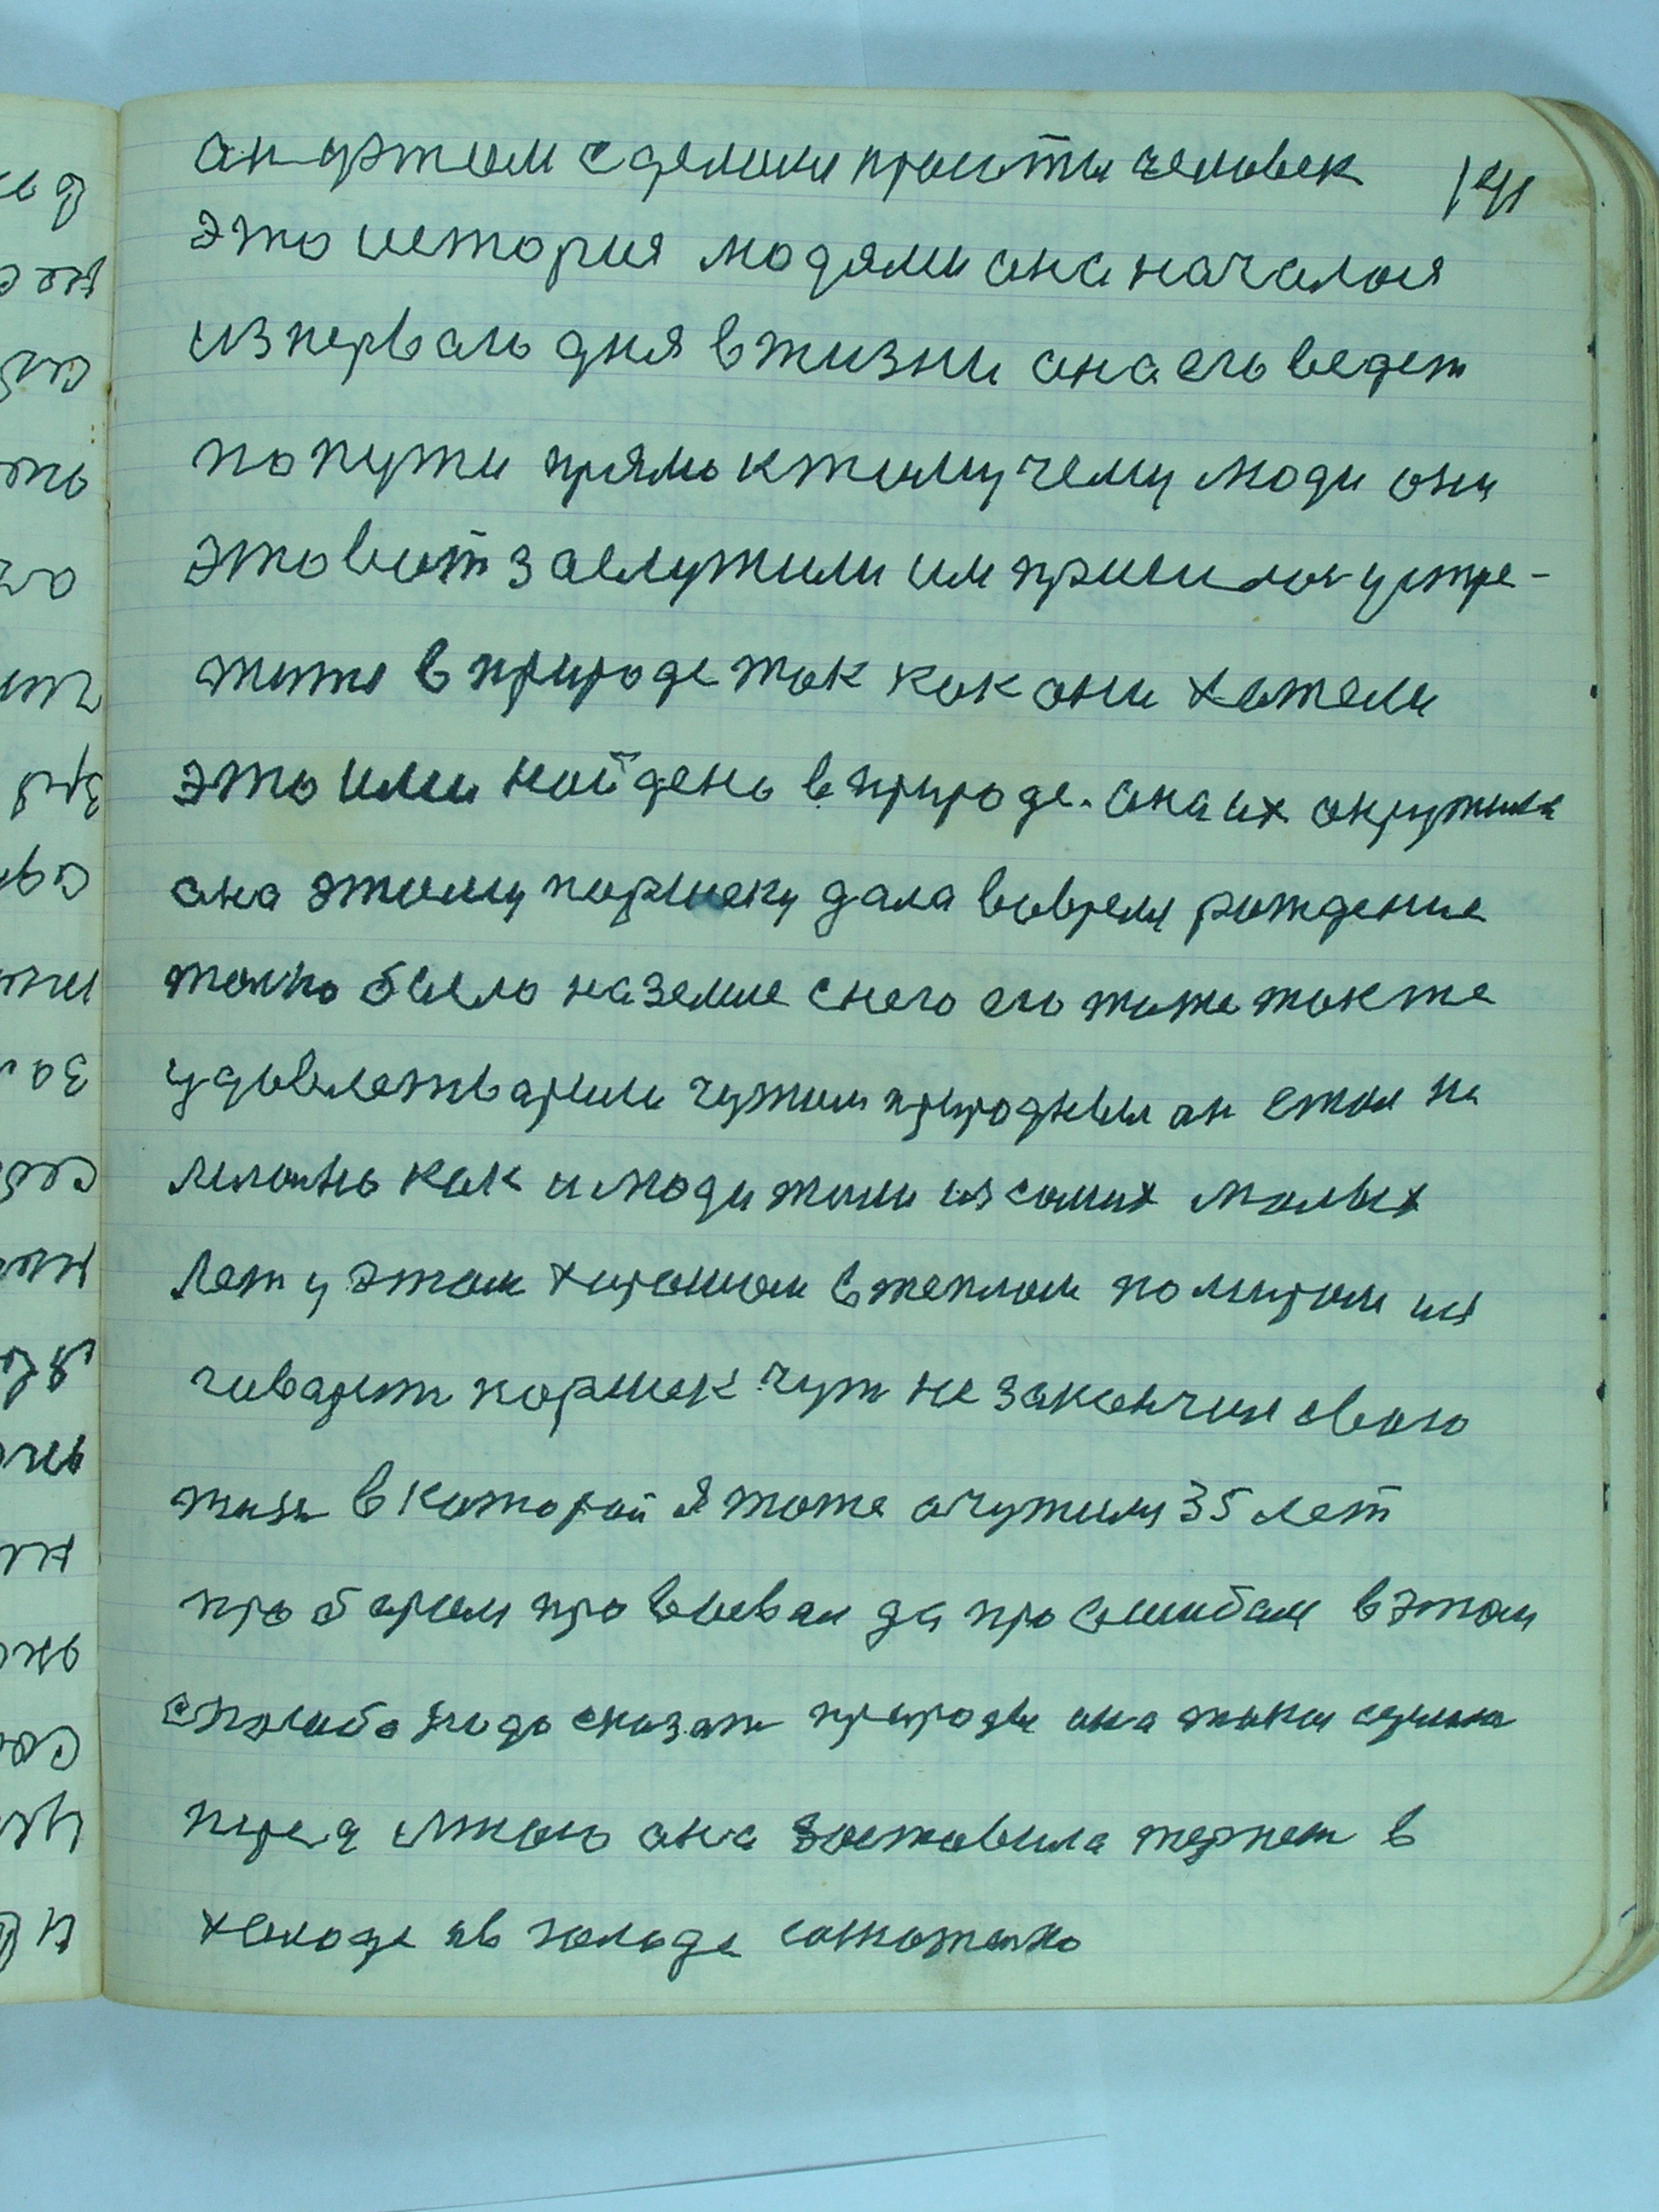 141
ан утом сделили прости человек
это история людями она началося
из перваго дня в жизни она его ведет
по пути прямо к тому чему люди они
это вот заслужили им пришлося устре-
тить в природе так как они хатели
это ими найдено в природе. она их окружила
она этому паршеку дала вовремя рождение
только было на земле с него его тоже также
удовлетварили чужим природным он стал не
лично как и люди жили из самих малых
лет у этом харошом в теплом по Мирам их
гиварит паршек чут не закончил своею
жизн в каторай я тоже очутился 35 лет
пробарил проваивал да проошибал в этом
спасиба нада сказат природи она таки сделала
перед мною она заставила терпет в
холоде и в голоде сазнателно